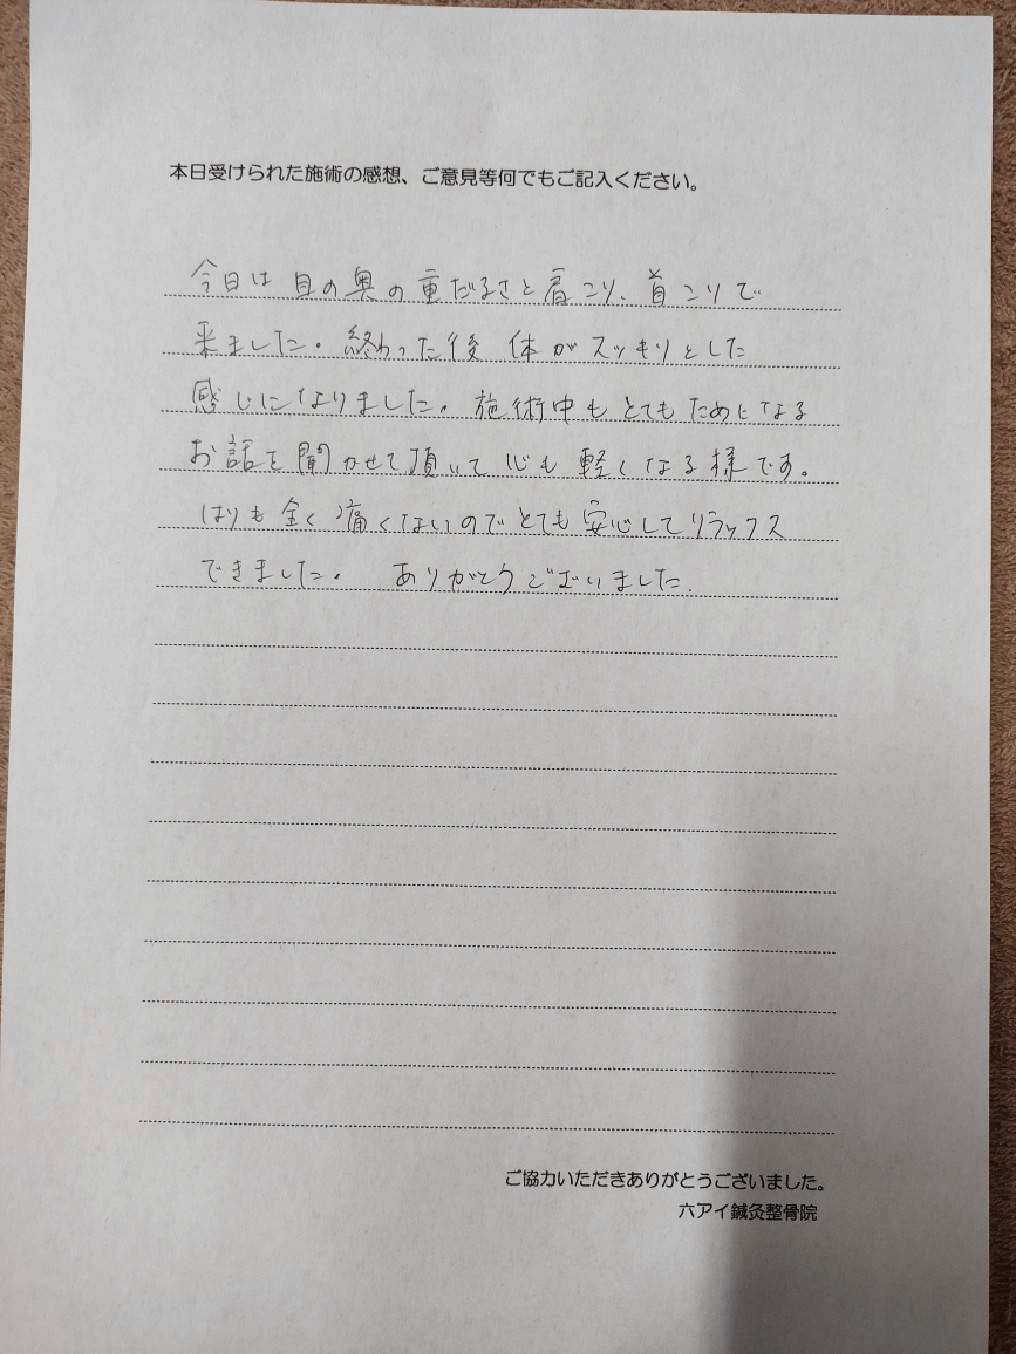 本日受けられた施術の感想、ご意見等何でもご記入ください。
今日は目の奥の重だるさと肩こり、首こりで
来ました。終わった後 体がスッキリとした
感じになりました。施術中もとてもためになる
お話を聞かせて頂いて心も軽くなる様です。
はりも全く痛くないのでとても安心してリラックス
できました。 ありがとうございました.
ご協力いただきありがとうございました。
六アイ鍼灸整骨院